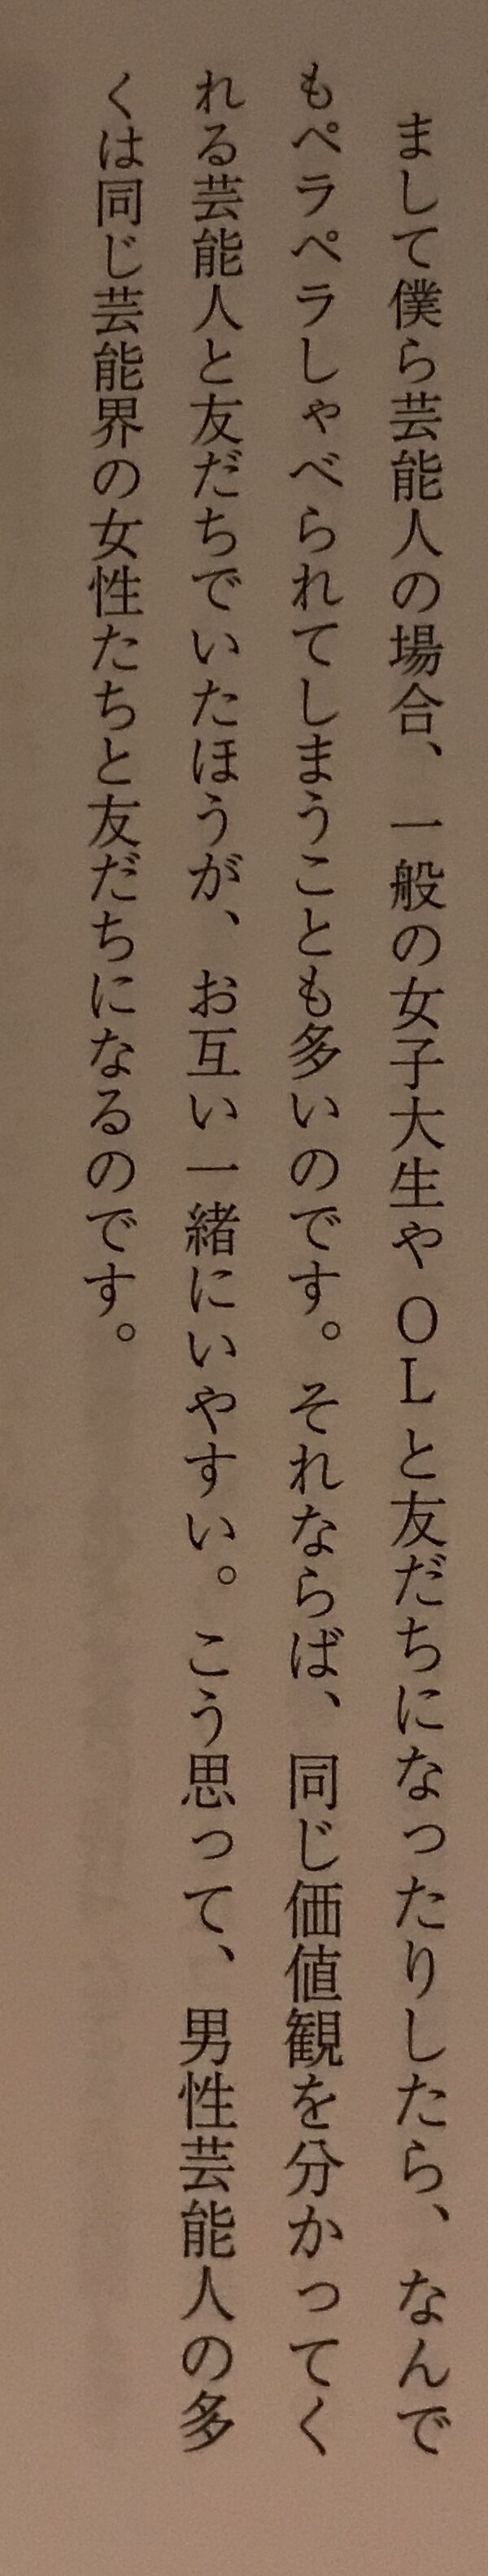 まして僕ら芸能人の場合、一般の女子大生やＯＬと友だちになったりしたら、なんで
もペラペラしゃべられてしまうことも多いのです。それならば、同じ価値観を分かってく
れる芸能人と友だちでいたほうが、お互い一緒にいやすい。こう思って、男性芸能人の多
くは同じ芸能界の女性たちと友だちになるのです。